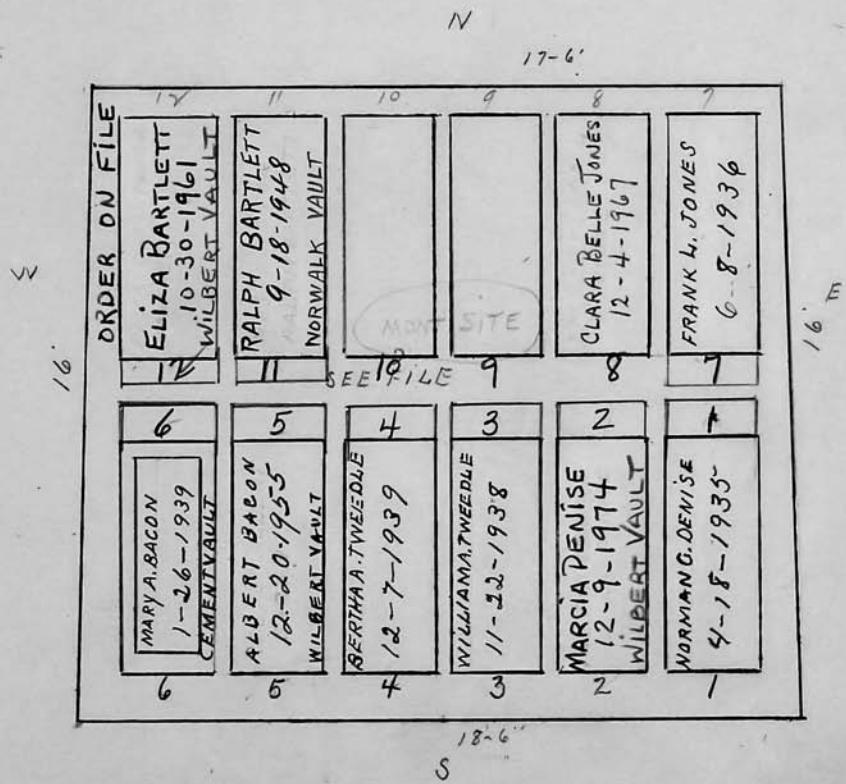 N
17-6'
12 11 10 9 8 7
ORDER ON FILE
ELIZA BARTLETT
10-30-1961
WILBERT VAULT
RALPH BARTLETT
9-18-1948
NORWALK VAULT
CLARA BELLE JONES
12-4-1967
FRANK L. JONES
6-8-1936
MONT SITE
W
16'
16'
E
12 11 10 9 8 7
SEE FILE
6 5 4 3 2 1
MARY A. BACON
1-26-1939
CEMENT VAULT
ALBERT BACON
12-20-1955
WILBERT VAULT
BERTHA A. TWEEDLE
12-7-1939
WILLIAM A. TWEEDLE
11-22-1938
MARCIA DENISE
12-9-1974
WILBERT VAULT
NORMAN G. DENISE
4-18-1935
6 5 4 3 2 1
18-6"
S